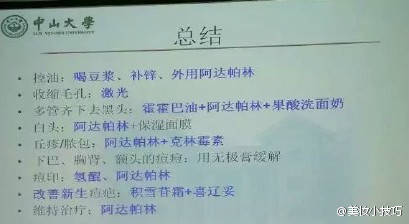 中山大學
SUN YAT-SEN UNIVERSITY
总结
• 控油：喝豆浆、补锌、外用阿达帕林
• 收缩毛孔：激光
• 多管齐下去黑头：霍霍巴油+阿达帕林+果酸洗面奶
• 白头：阿达帕林+保湿面膜
• 丘疹/脓包：阿达帕林+克林霉素
• 下巴、胸背、额头的痘痘：用无极膏缓解
• 痘印：氢醌、阿达帕林
• 改善新生痘疤：积雪苷霜+喜辽妥
• 维持治疗：阿达帕林
@美妆小技巧